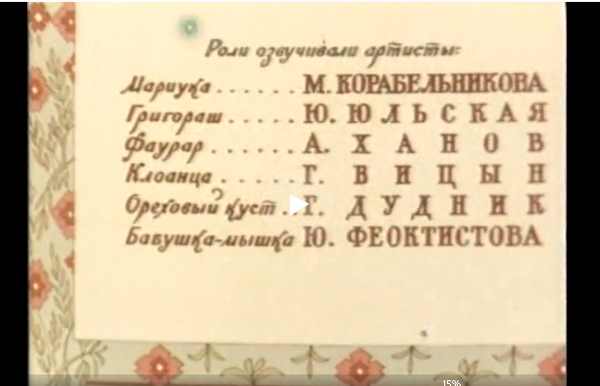 Роли озвучивали артисты:
Мариука ...... М. КОРАБЕЛЬНИКОВА
Григораш ...... Ю. ЮЛЬСКАЯ
Фаурар ...... А. ХАНОВ
Клоанца ...... Г. ВИЦЫН
Ореховый куст .. Г. ДУДНИК
Бабушка-мышка Ю. ФЕОКТИСТОВА
15%